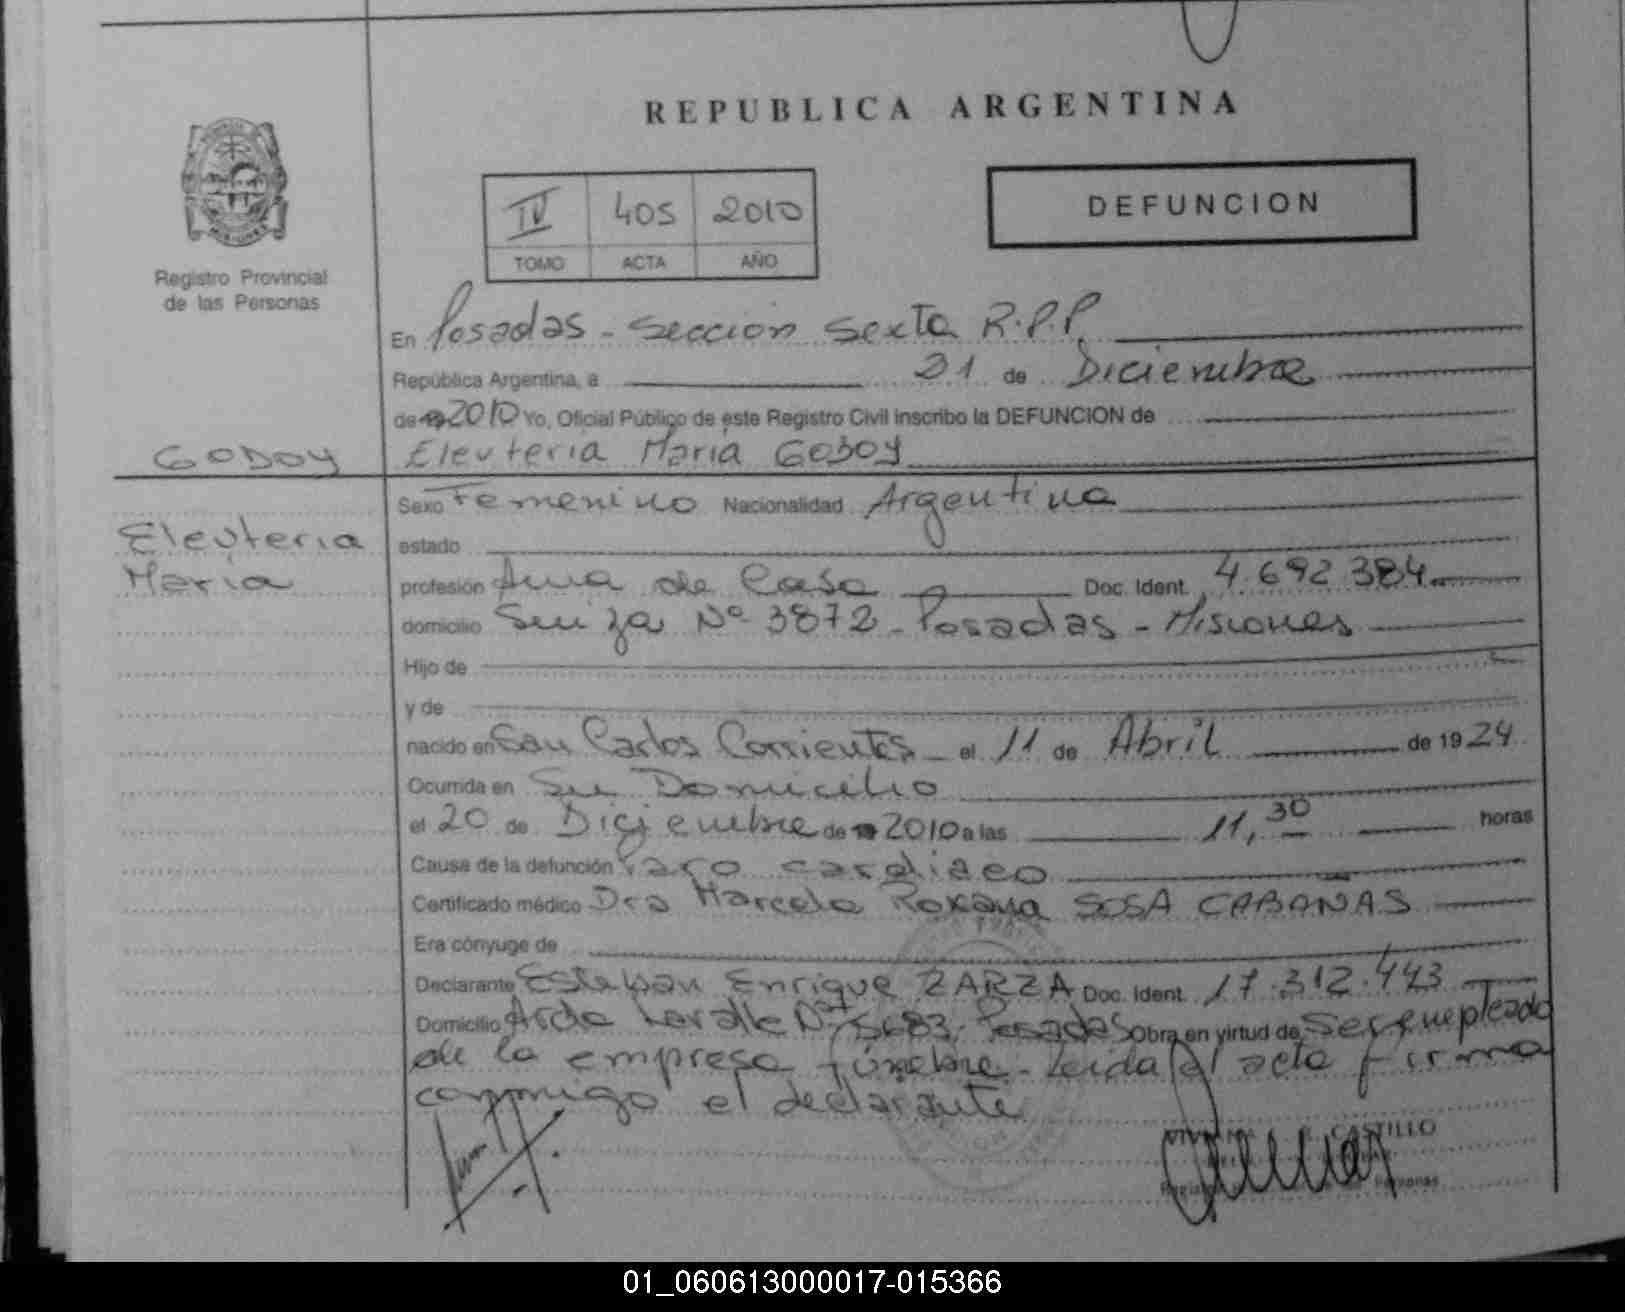 REPUBLICA ARGENTINA
IV 405 2010
TOMO ACTA AÑO
DEFUNCION
Registro Provincial
de las Personas
MISIONES
En Posadas - Sección Sexta R.P.P.
República Argentina, a 21 de Diciembre
de 2010 Yo, Oficial Público de este Registro Civil inscribo la DEFUNCION de
GODOY
Eleuteria María GODOY
Eleuteria
María
Sexo Femenino Nacionalidad Argentina
estado
profesión Ama de Casa Doc. Ident. 4.692.384
domicilio Suiza Nº 3872 - Posadas - Misiones
Hijo de
y de
nacido en San Carlos Corrientes el 11 de Abril de 1924
Ocurrida en Su Domicilio
el 20 de Diciembre de 2010 a las 11,30 horas
Causa de la defunción Paro cardiaco
Certificado médico Dra Marcela Roxana SOSA CABAÑAS
Era cónyuge de
Declarante Esteban Enrique ZARZA Doc. Ident. 17.312.443
Domicilio Avda Lavalle Nº 5683, Posadas Obra en virtud de Ser empleado
de la empresa fúnebre - Leida el acta firma
conmigo el declarante
CASTILLO
Personas
01_060613000017-015366